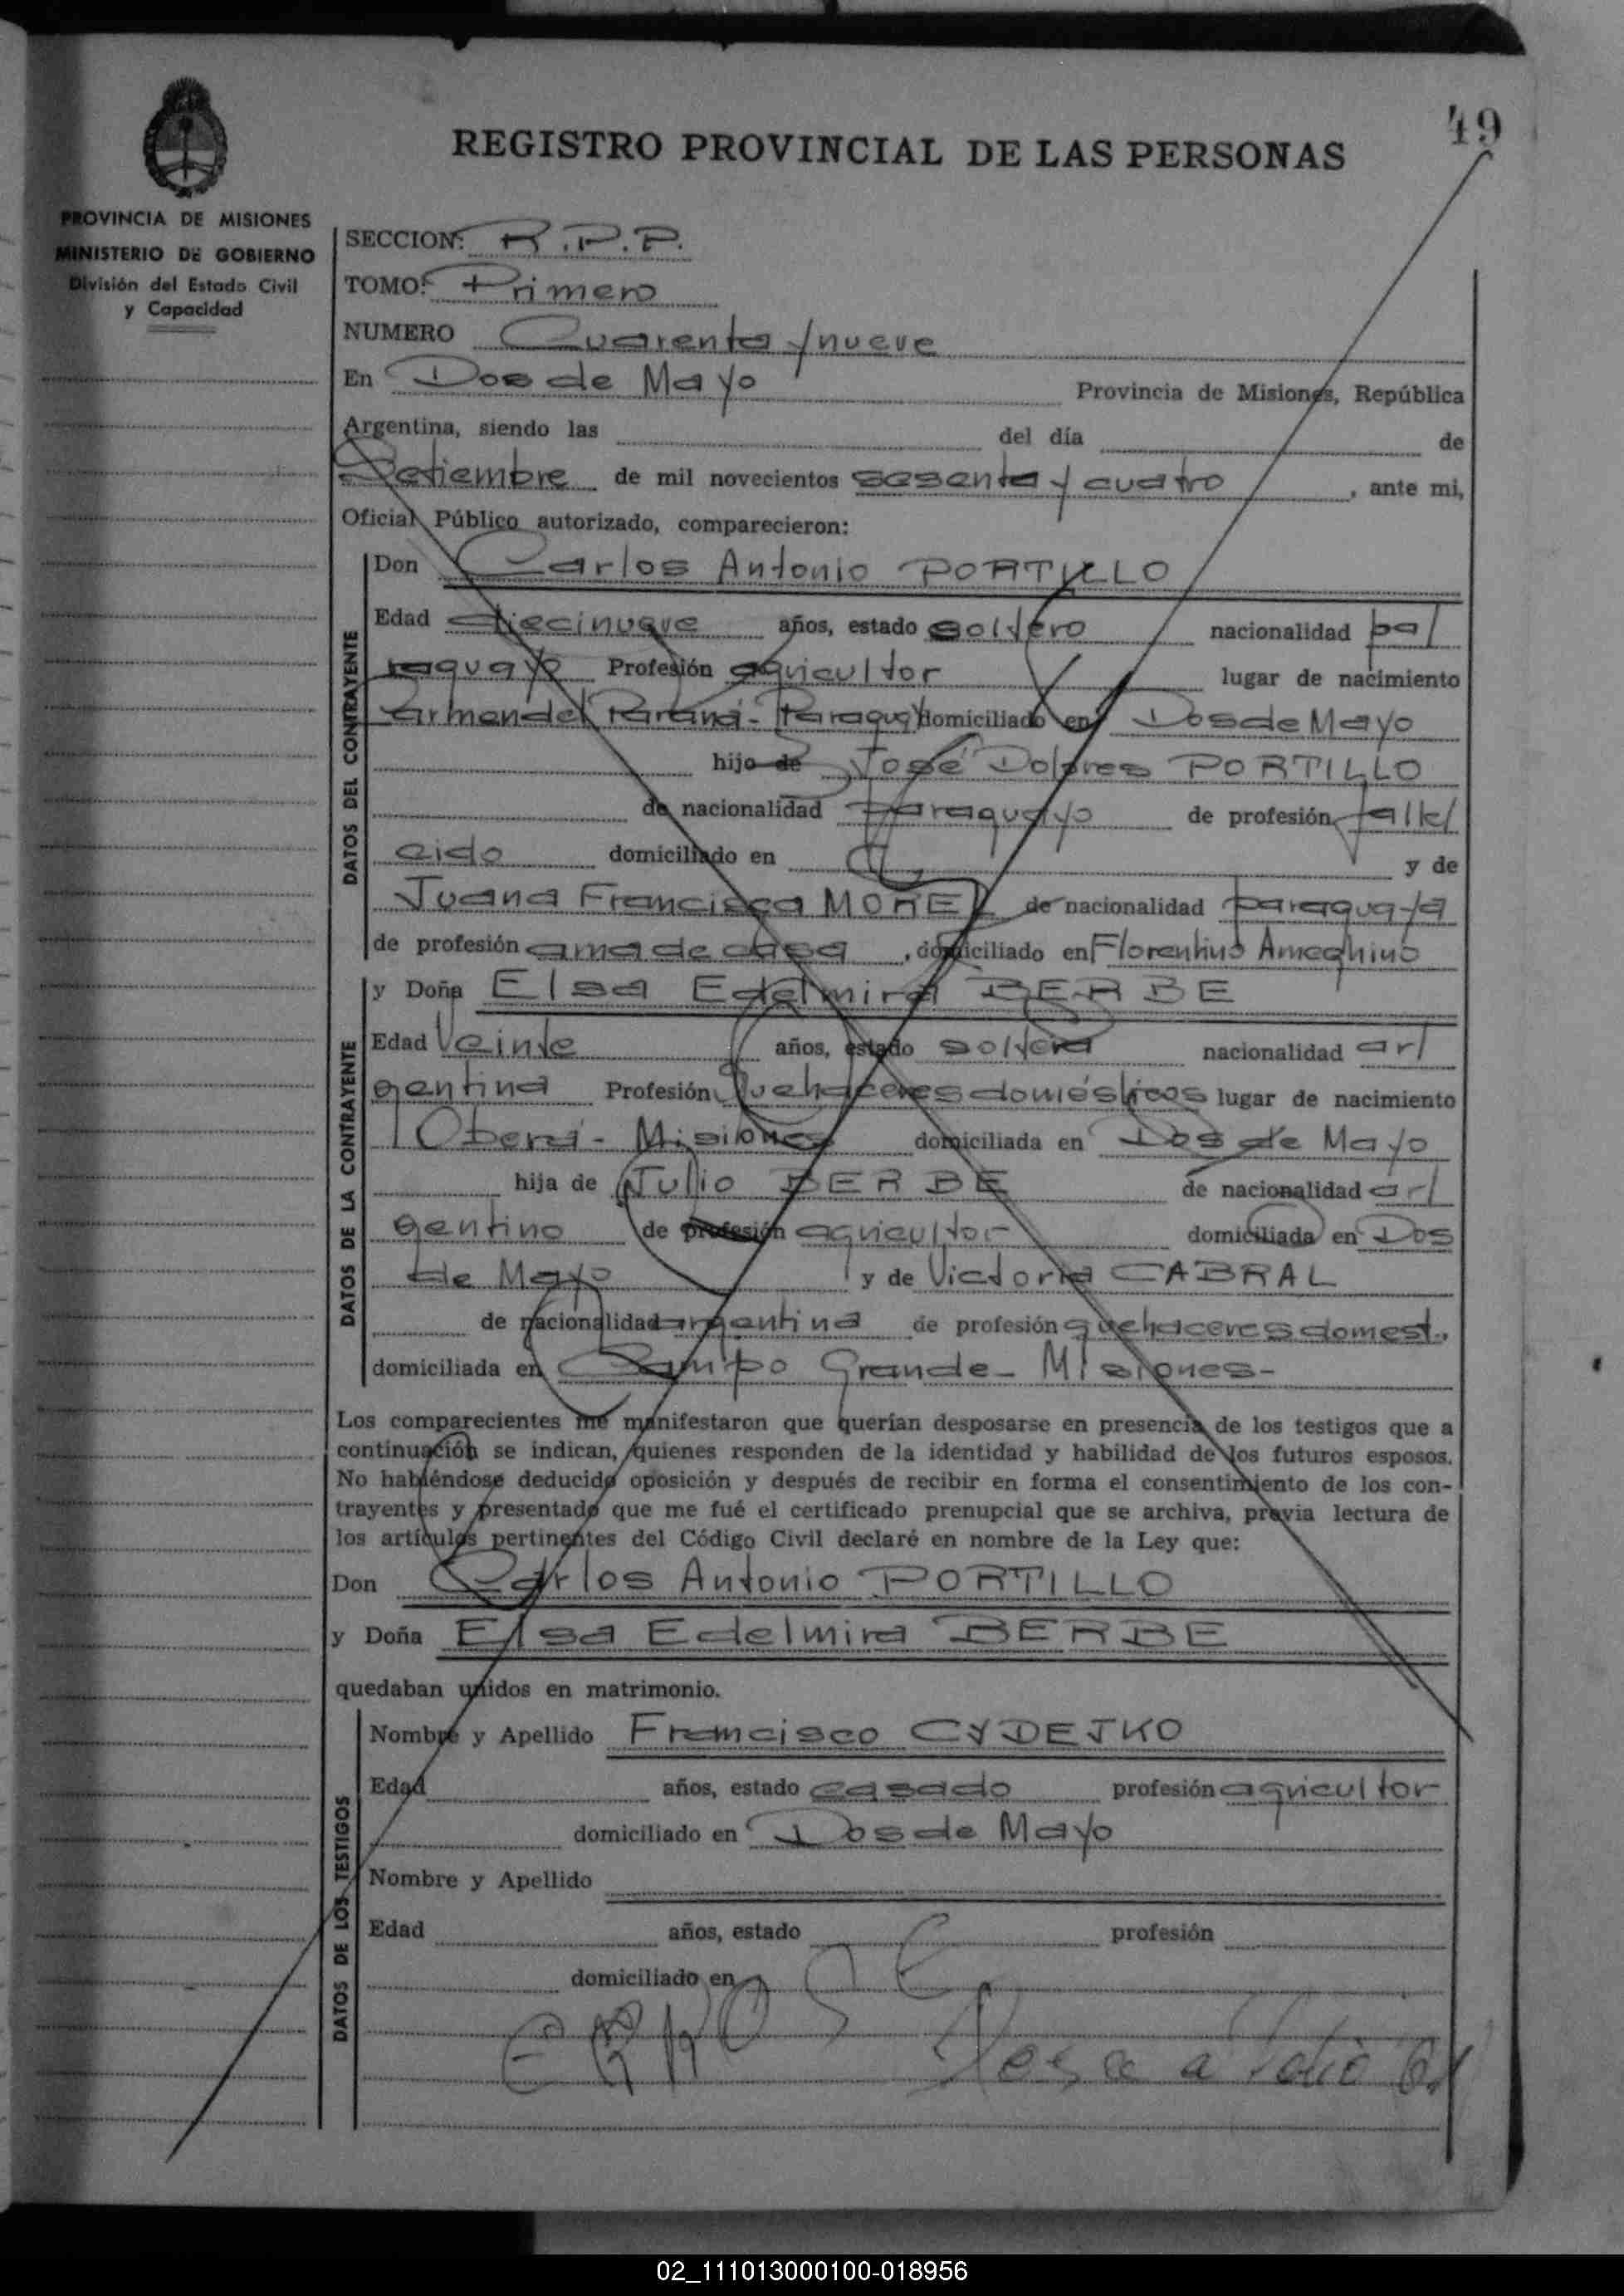 49
REGISTRO PROVINCIAL DE LAS PERSONAS
PROVINCIA DE MISIONES
MINISTERIO DE GOBIERNO
División del Estado Civil
y Capacidad
SECCION: R.P.P.
TOMO: Primero
NUMERO Cuarenta y nueve
En Dos de Mayo Provincia de Misiones, República
Argentina, siendo las del día de
Setiembre de mil novecientos sesenta y cuatro, ante mi,
Oficial Público autorizado, comparecieron:
DATOS DEL CONTRAYENTE
Don Carlos Antonio PORTILLO
Edad diecinueve años, estado soltero nacionalidad pa/
raguayo Profesión agricultor lugar de nacimiento
Carmen del Paraná - Paraguay domiciliado en Dos de Mayo
hijo de José Dolores PORTILLO
de nacionalidad paraguayo de profesión falle/
cido domiciliado en y de
Juana Francisca MOREL de nacionalidad paraguaya
de profesión ama de casa, domiciliado en Florentino Ameghino
DATOS DE LA CONTRAYENTE
y Doña Elsa Edelmira BERBE
Edad Veinte años, estado soltera nacionalidad ar/
gentina Profesión Quehaceres domésticos lugar de nacimiento
Oberá - Misiones domiciliada en Dos de Mayo
hija de Julio BERBE de nacionalidad ar/
gentino de profesión agricultor domiciliada en Dos
de Mayo y de Victoria CABRAL
de nacionalidad argentina de profesión quehaceres domest.
domiciliada en Campo Grande - Misiones -
Los comparecientes me manifestaron que querían desposarse en presencia de los testigos que a
continuación se indican, quienes responden de la identidad y habilidad de los futuros esposos.
No habiéndose deducido oposición y después de recibir en forma el consentimiento de los con-
trayentes y presentado que me fué el certificado prenupcial que se archiva, previa lectura de
los artículos pertinentes del Código Civil declaré en nombre de la Ley que:
Don Carlos Antonio PORTILLO
y Doña Elsa Edelmira BERBE
quedaban unidos en matrimonio.
DATOS DE LOS TESTIGOS
Nombre y Apellido Francisco CYDEJKO
Edad años, estado casado profesión agricultor
domiciliado en Dos de Mayo
Nombre y Apellido
Edad años, estado profesión
domiciliado en
a folio
02_111013000100-018956